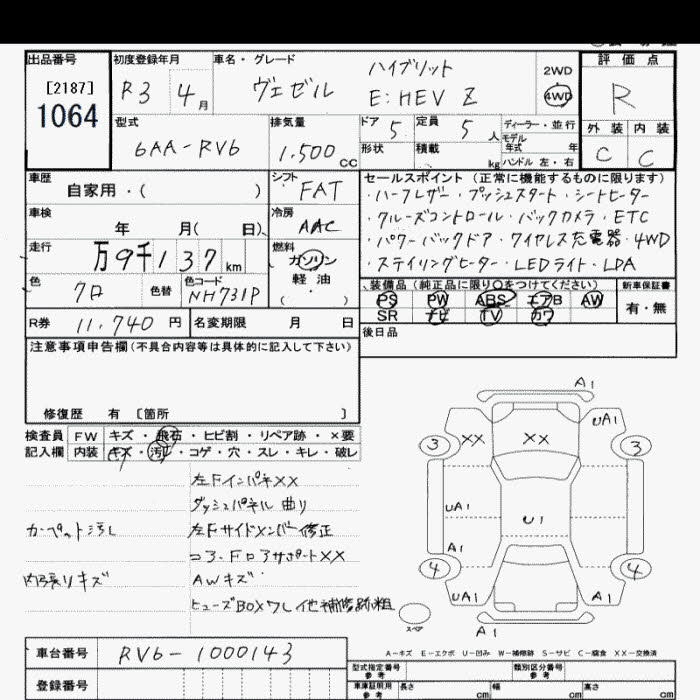 出品番号
[2187]
1064
初度登録年月
R3 4月
車名・グレード
ヴェゼル
ハイブリット
E:HEV Z
2WD
4WD
評価点
R
外装 内装
C C
型式
6AA-RV6
排気量
1.500 cc
ドア 5
定員 5 人
形状
積載 kg
ディーラー・並行
モデル年式 年
ハンドル 左・右
車歴
自家用・( )
シフト FAT
車検
年 月( 日)
冷房 AAC
走行
万9千137km
燃料
ガソリン
軽油
( ・ )
色 クロ
色替
色コード NH731P
R券 11.740 円
名変期限 月 日
セールスポイント(正常に機能するものに限ります)
・ハーフレザー・プッシュスタート・シートヒーター
・クルーズコントロール・バックカメラ・ETC
・パワーバックドア・ワイヤレス充電器・4WD
・ステイリングヒーター・LEDライト・LDA
装備品(純正品に限り○をつけてください)
PS PW ABS エアB AW
SR ナビ TV カワ
新車保証書
有・無
後日品
注意事項申告欄(不具合内容等は具体的に記入して下さい)
修復歴 有 [箇所 ]
検査員 FW キズ・飛石・ヒビ割・リペア跡・×要
記入欄 内装 キズ・汚レ・コゲ・穴・スレ・キレ・破レ
左FインパネXX
ダッシュパネル 曲り
カーペット汚レ
左Fサイドメンバー修正
コア、FロアサポートXX
内張りキズ
AWキズ
ヒューズBOXワレ 他補修跡粗
A1
UA1
3 XX XX 3
UA1
U1
A1
4 4
UA1 A1
A1
スペア
A-キズ E-エクボ U-凹み W-補修跡 S-サビ C-腐食 XX-交換済
車台番号 RV6-1000143
登録番号
型式指定番号
参考
類別区分番号
参考
車庫証明用
参考
長さ cm
幅 cm
高さ cm